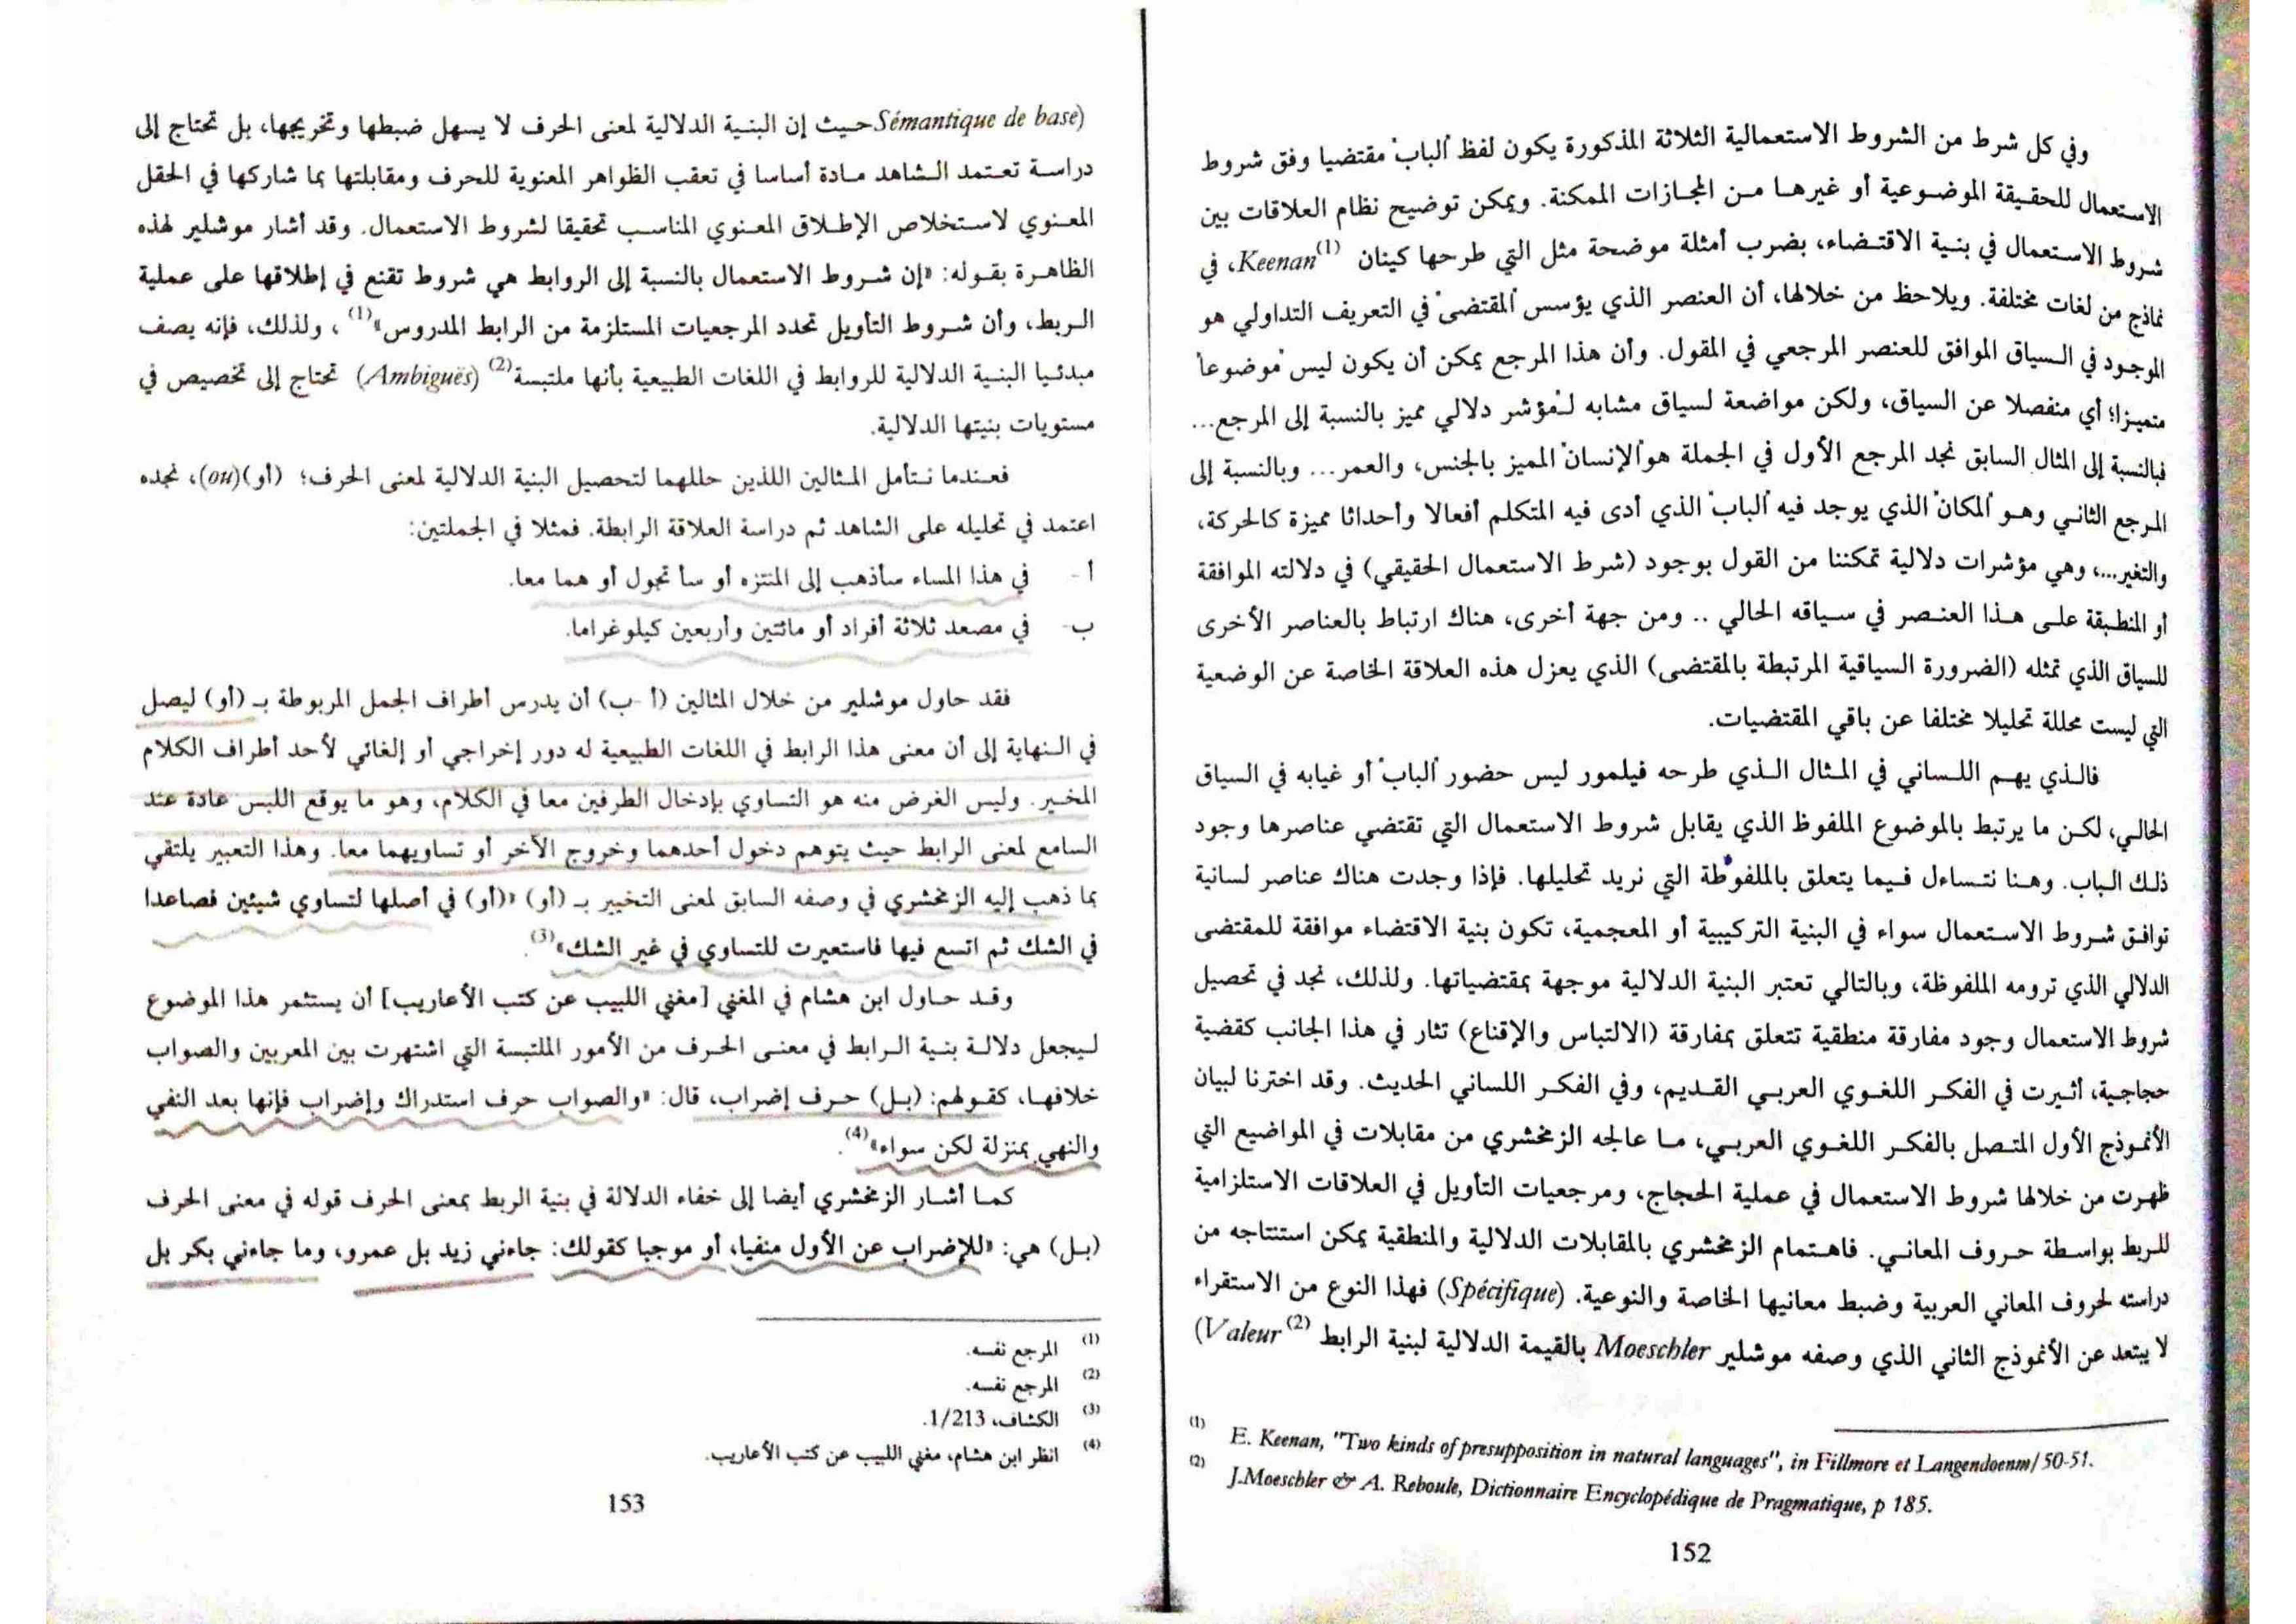 وفي كل شرط من الشروط الاستعمالية الثلاثة المذكورة يكون لفظ "الباب" مقتضيا وفق شروط
الاستعمال للحقيقة الموضوعية أو غيرها من المجازات الممكنة. ويمكن توضيح نظام العلاقات بين
شروط الاستعمال في بنية الاقتضاء، بضرب أمثلة موضحة مثل التي طرحها كينان Keenan(1)، في
نماذج من لغات مختلفة. ويلاحظ من خلالها، أن العنصر الذي يؤسس "المقتضى" في التعريف التداولي هو
الموجود في السياق الموافق للعنصر المرجعي في المقول. وأن هذا المرجع يمكن أن يكون ليس "موضوعا"
متميزا؛ أي منفصلا عن السياق، ولكن مواضعة لسياق مشابه لـ"مؤشر دلالي مميز بالنسبة إلى المرجع...
فبالنسبة إلى المثال السابق نجد المرجع الأول في الجملة هو "الإنسان" المميز بالجنس، والعمر... وبالنسبة إلى
المرجع الثاني وهو "المكان" الذي يوجد فيه "الباب" الذي أدى فيه المتكلم أفعالا وأحداثا مميزة كالحركة،
والتغير...، وهي مؤشرات دلالية تمكننا من القول بوجود (شرط الاستعمال الحقيقي) في دلالته الموافقة
أو المنطبقة على هذا العنصر في سياقه الحالي .. ومن جهة أخرى، هناك ارتباط بالعناصر الأخرى
للسياق الذي تمثله (الضرورة السياقية المرتبطة بالمقتضى) الذي يعزل هذه العلاقة الخاصة عن الوضعية
التي ليست محللة تحليلا مختلفا عن باقي المقتضيات.
فالذي يهم اللساني في المثال الذي طرحه فيلمور ليس حضور "الباب" أو غيابه في السياق
الحالي، لكن ما يرتبط بالموضوع الملفوظ الذي يقابل شروط الاستعمال التي تقتضي عناصرها وجود
ذلك الباب. وهنا نتساءل فيما يتعلق بالملفوظة التي نريد تحليلها. فإذا وجدت هناك عناصر لسانية
توافق شروط الاستعمال سواء في البنية التركيبية أو المعجمية، تكون بنية الاقتضاء موافقة للمقتضى
الدلالي الذي ترومه الملفوظة، وبالتالي تعتبر البنية الدلالية موجهة بمقتضياتها. ولذلك، نجد في تحصيل
شروط الاستعمال وجود مفارقة منطقية تتعلق بمفارقة (الالتباس والإقناع) تثار في هذا الجانب كقضية
حجاجية، أثيرت في الفكر اللغوي العربي القديم، وفي الفكر اللساني الحديث. وقد اخترنا لبيان
الأنموذج الأول المتصل بالفكر اللغوي العربي، ما عالجه الزمخشري من مقابلات في المواضيع التي
ظهرت من خلالها شروط الاستعمال في عملية الحجاج، ومرجعيات التأويل في العلاقات الاستلزامية
للربط بواسطة حروف المعاني. فاهتمام الزمخشري بالمقابلات الدلالية والمنطقية يمكن استنتاجه من
دراسته لحروف المعاني العربية وضبط معانيها الخاصة والنوعية. (Spécifique) فهذا النوع من الاستقراء
لا يبتعد عن الأنموذج الثاني الذي وصفه موشلير Moeschler بالقيمة الدلالية لبنية الرابط (2)Valeur)
(1) E. Keenan, "Two kinds of presupposition in natural languages", in Fillmore et Langendoenm/ 50-51.
(2) J.Moeschler & A. Reboule, Dictionnaire Encyclopédique de Pragmatique, p 185.
152
Sémantique de base) حيث إن البنية الدلالية لمعنى الحرف لا يسهل ضبطها وتخريجها، بل تحتاج إلى
دراسة تعتمد الشاهد مادة أساسا في تعقب الظواهر المعنوية للحرف ومقابلتها بما شاركها في الحقل
المعنوي لاستخلاص الإطلاق المعنوي المناسب تحقيقا لشروط الاستعمال. وقد أشار موشلير لهذه
الظاهرة بقوله: «إن شروط الاستعمال بالنسبة إلى الروابط هي شروط تقنع في إطلاقها على عملية
الربط، وأن شروط التأويل تحدد المرجعيات المستلزمة من الرابط المدروس»(1)، ولذلك، فإنه يصف
مبدئيا البنية الدلالية للروابط في اللغات الطبيعية بأنها ملتبسة(2) (Ambiguës) تحتاج إلى تخصيص في
مستويات بنيتها الدلالية.
فعندما نتأمل المثالين اللذين حللهما لتحصيل البنية الدلالية لمعنى الحرف؛ (أو)(ou)، نجده
اعتمد في تحليله على الشاهد ثم دراسة العلاقة الرابطة. فمثلا في الجملتين:
أ- في هذا المساء سأذهب إلى المنتزه أو سأ تجول أو هما معا.
ب- في مصعد ثلاثة أفراد أو مائتين وأربعين كيلوغراما.
فقد حاول موشلير من خلال المثالين (أ -ب) أن يدرس أطراف الجمل المربوطة بـ (أو) ليصل
في النهاية إلى أن معنى هذا الرابط في اللغات الطبيعية له دور إخراجي أو إلغائي لأحد أطراف الكلام
المخير. وليس الغرض منه هو التساوي بإدخال الطرفين معا في الكلام، وهو ما يوقع اللبس عادة عند
السامع لمعنى الرابط حيث يتوهم دخول أحدهما وخروج الآخر أو تساويهما معا. وهذا التعبير يلتقي
بما ذهب إليه الزمخشري في وصفه السابق لمعنى التخيير بـ (أو) «(أو) في أصلها لتساوي شيئين فصاعدا
في الشك ثم اتسع فيها فاستعيرت للتساوي في غير الشك»(3).
وقد حاول ابن هشام في المغني [مغني اللبيب عن كتب الأعاريب] أن يستثمر هذا الموضوع
ليجعل دلالة بنية الرابط في معنى الحرف من الأمور الملتبسة التي اشتهرت بين المعربين والصواب
خلافها، كقولهم: (بل) حرف إضراب، قال: «والصواب حرف استدراك وإضراب فإنها بعد النفي
والنهي بمنزلة لكن سواء»(4).
كما أشار الزمخشري أيضا إلى خفاء الدلالة في بنية الربط بمعنى الحرف قوله في معنى الحرف
(بل) هي: «للإضراب عن الأول منفيا، أو موجبا كقولك: جاءني زيد بل عمرو، وما جاءني بكر بل
(1) المرجع نفسه.
(2) المرجع نفسه.
(3) الكشاف، 1/213.
(4) انظر ابن هشام، مغني اللبيب عن كتب الأعاريب.
153